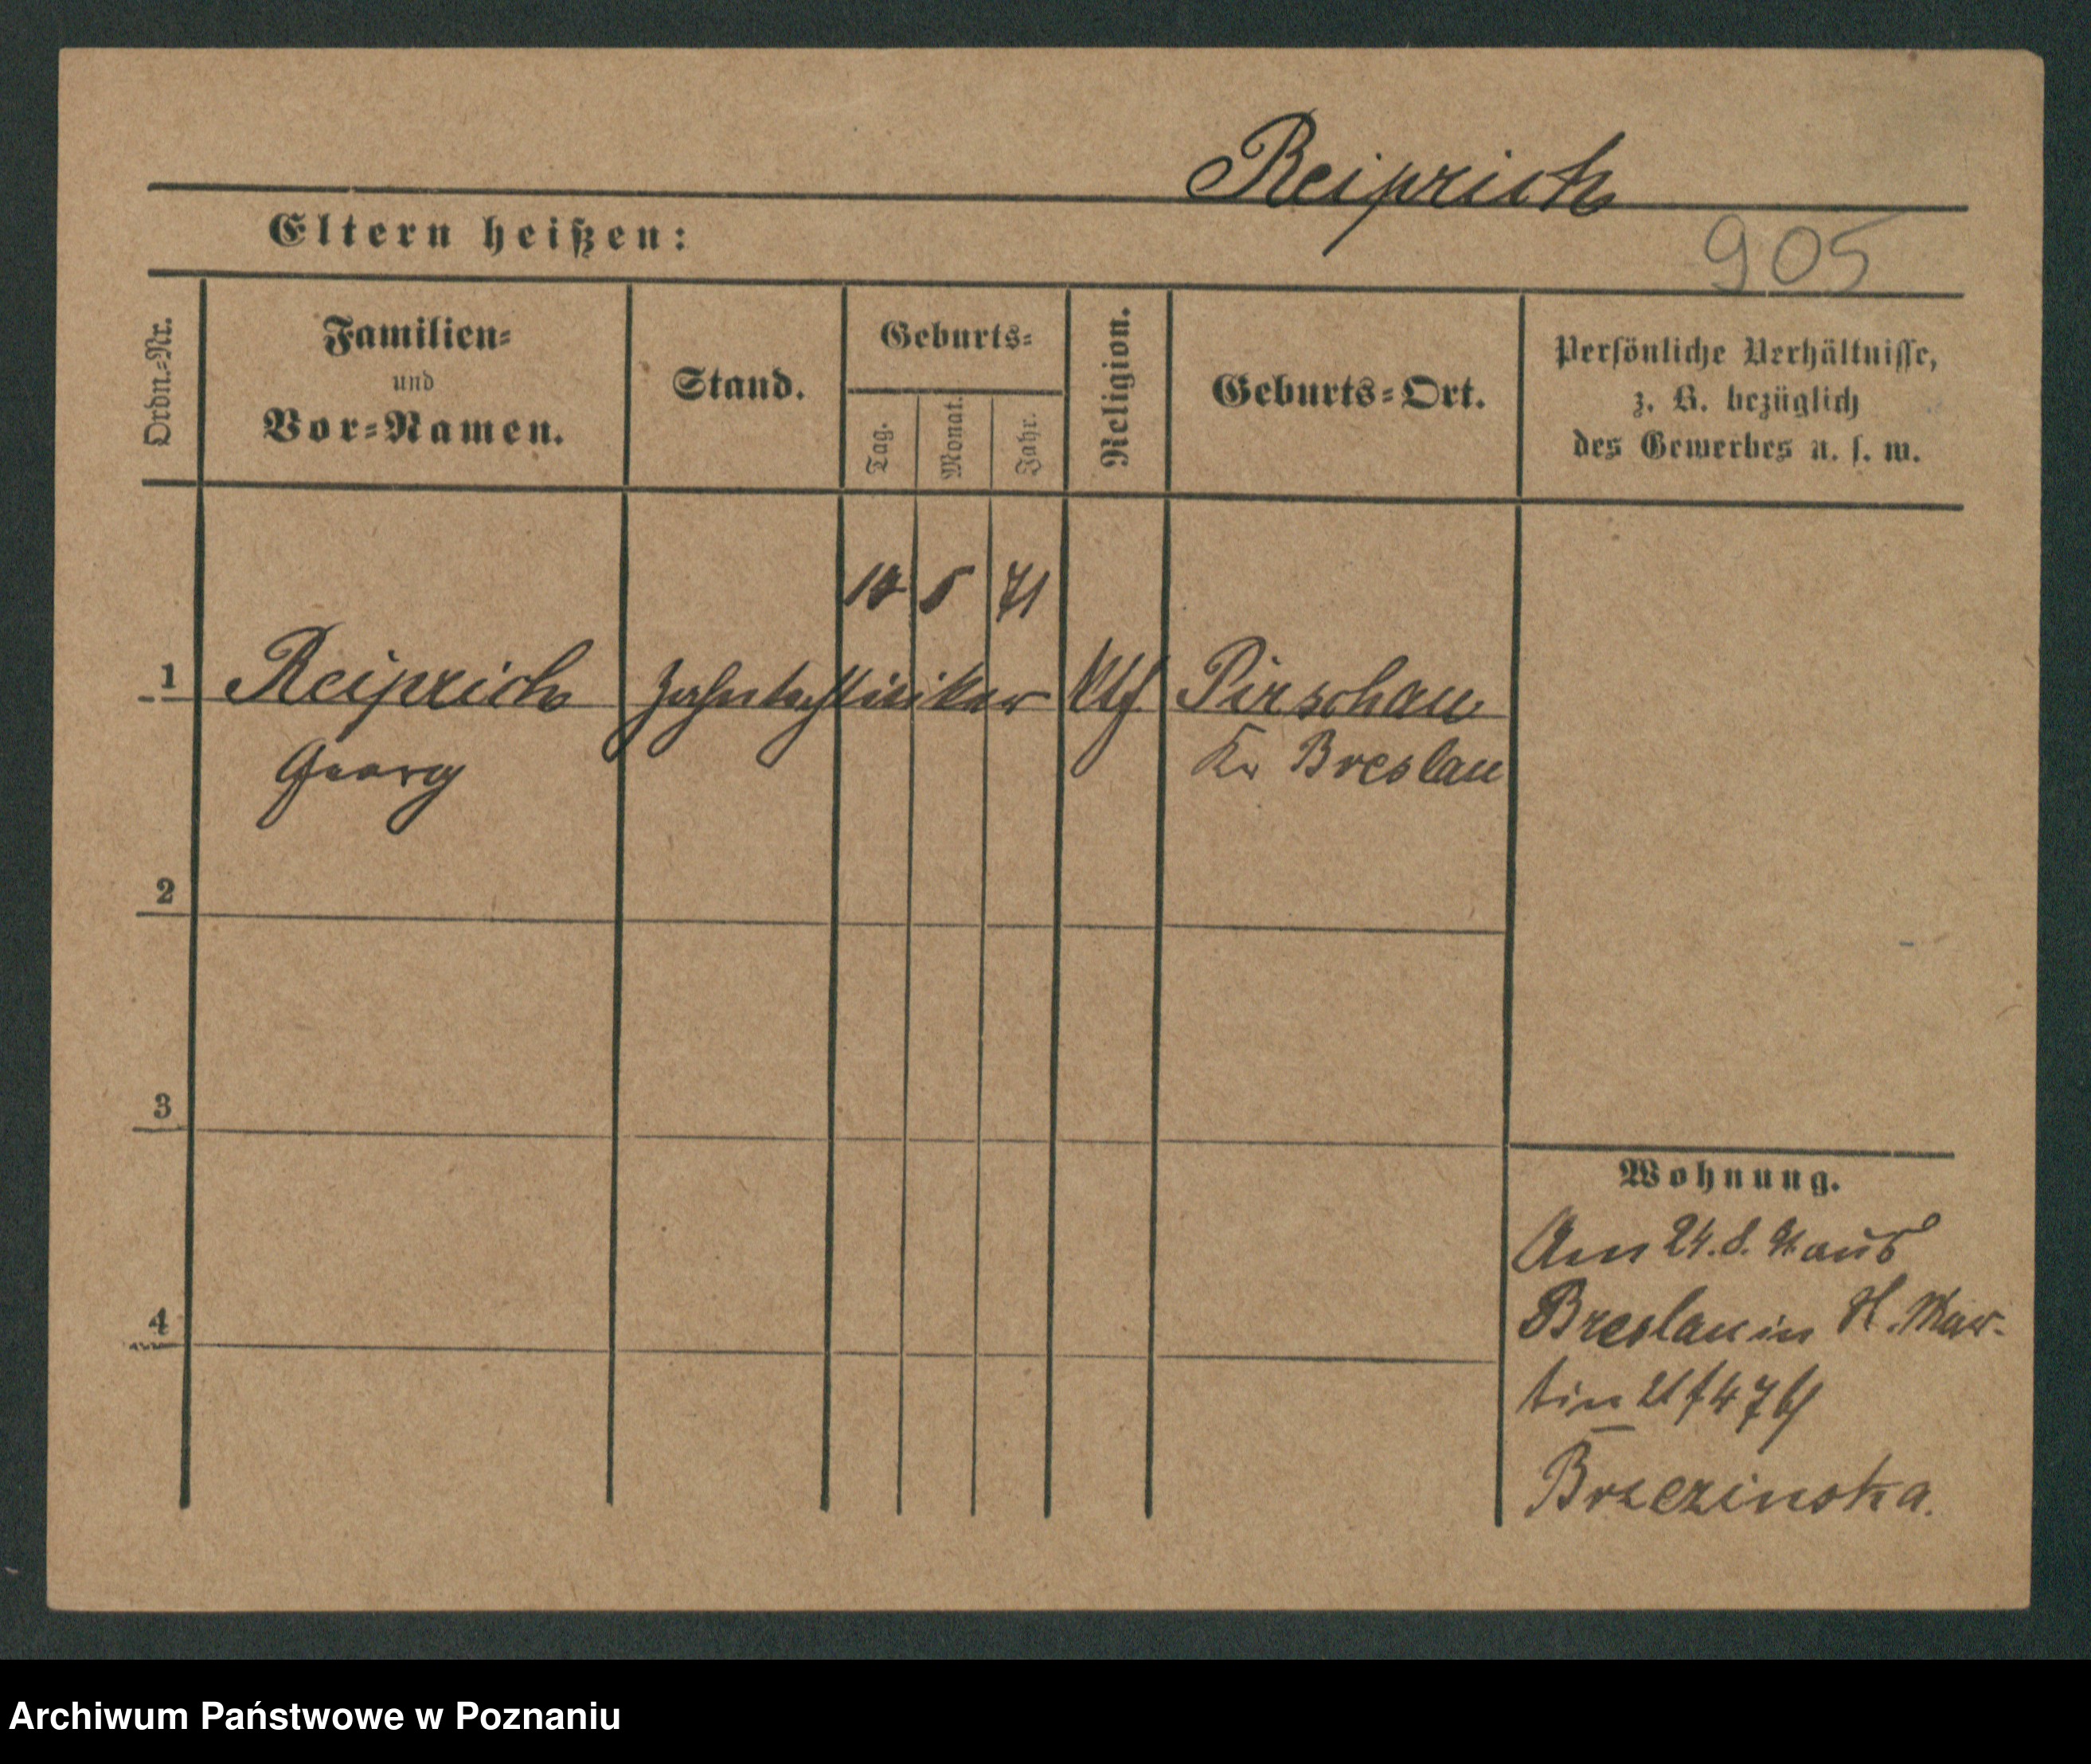 Reiprich
Eltern heißen:
905
Ordn.-Nr.
Familien-
und
Vor-Namen.
Stand.
Geburts-
Tag.
Monat.
Jahr.
Religion.
Geburts-Ort.
Persönliche Verhältnisse,
z. B. bezüglich
des Gewerbes u. s. w.
5 71
1 Reiprich Zahntechniker Pirschau
Georg Kr Breslau
2
3
4
Wohnung.
Am 24. 8. aus
Breslau in St. Mar-
tin
Brzezinska.
Archiwum Państwowe w Poznaniu